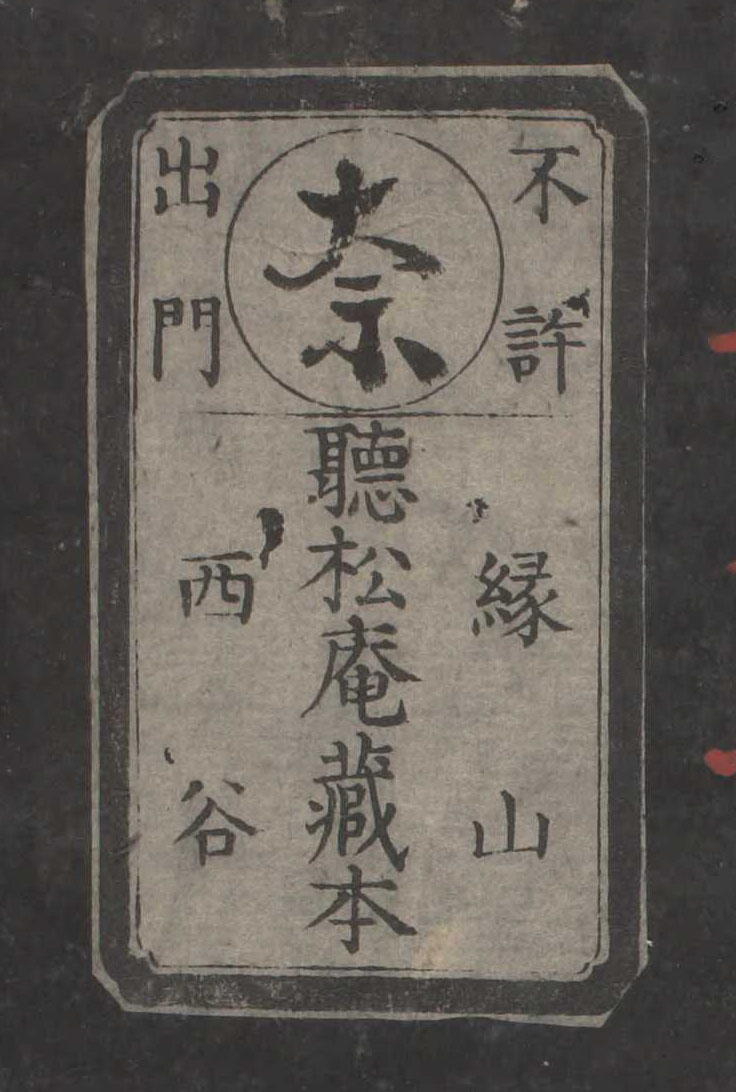 不許
奈
出門
縁山
聽松庵藏本
西谷